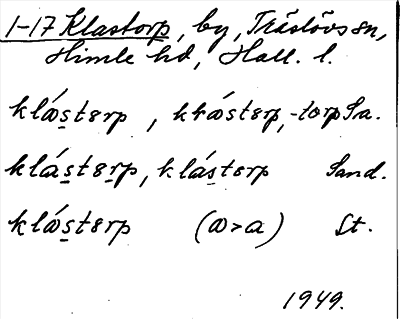 1-17 Klastorp, by, Träslövs sn,
Himle hd, Hall. l.
klǽsterp, -torp Sa.
klásterp, klástorp Sand.
klǽsterp (æ>a) St.
1949.